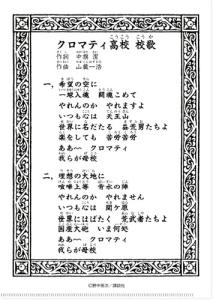 クロマティ高校 校歌
こうこう こうか
作詞 中根 潔
作曲 山義一浩
一、希望の空に
一球入魂 闘魂こめて
やれんのか やれますよ
いつもむは 天王山
世界に名だたる 益荒男たちよ
楽をしても 苦労苦労
ああ～ クロマティ
我らが母校
二、理想の大地に
喧嘩上等 背水の陣
やれんのか やれません
いつもむは 関ヶ原
世界にはばたく 荒武者たちよ
国産大砲 いま何処
ああ～ クロマティ
我らが母校
©野中英次／講談社